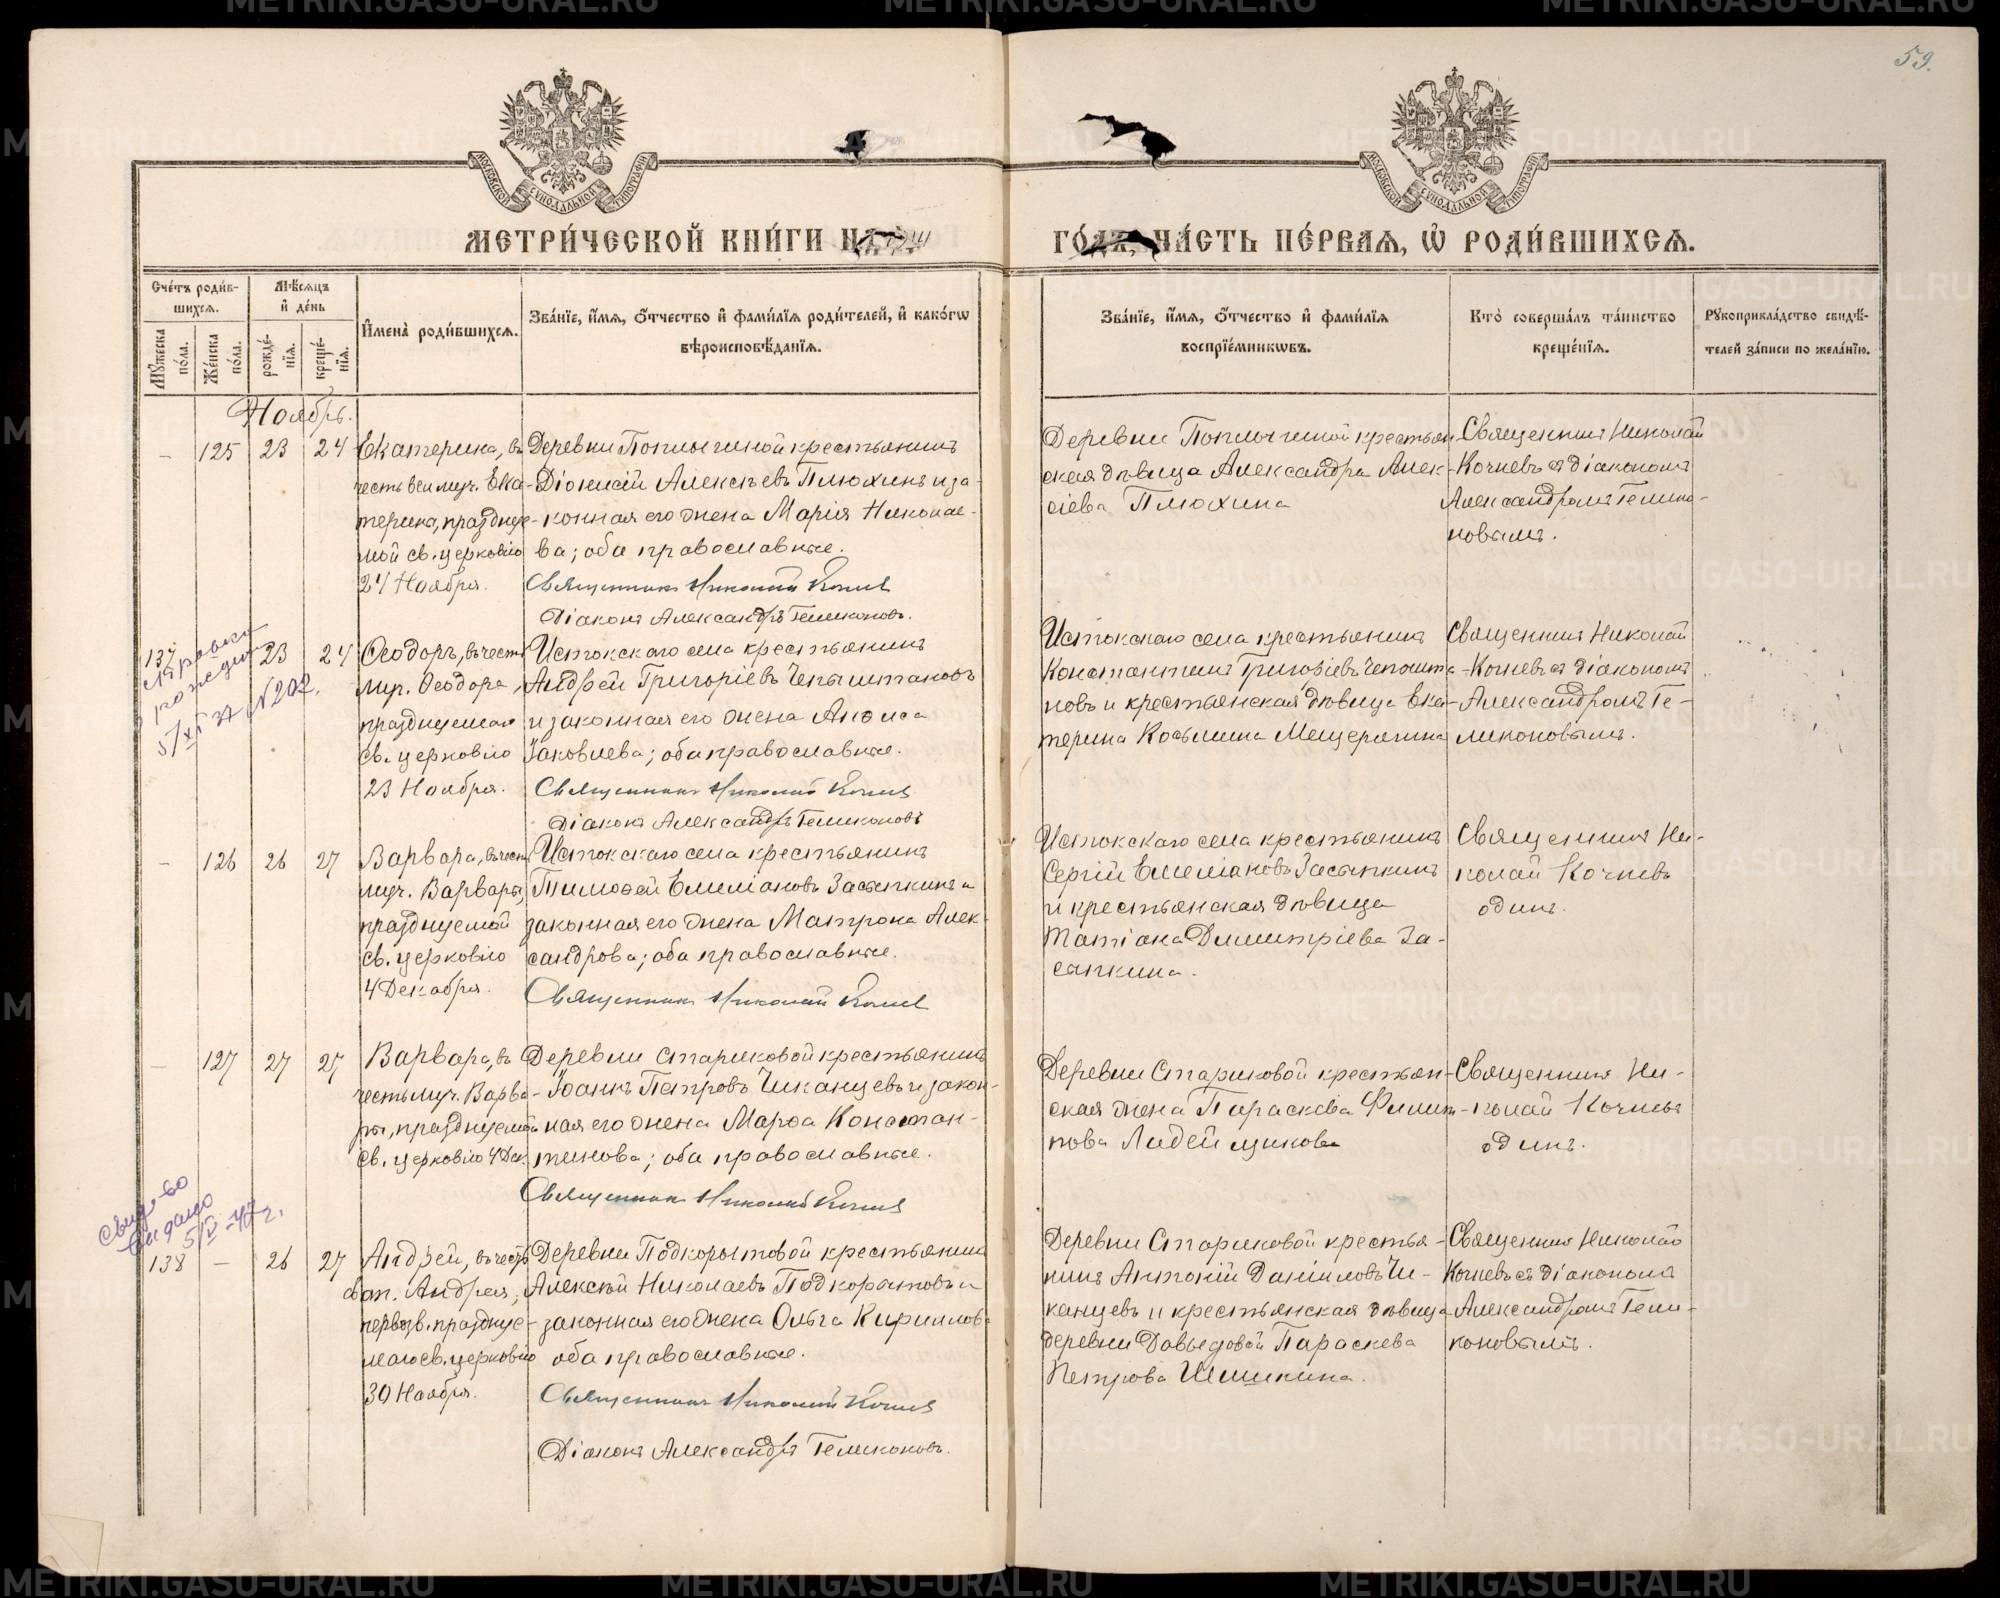 59.
МОСКОВСКОЙ СѴНОДАЛЬНОЙ ТИПОГРАФІИ
МОСКОВСКОЙ СѴНОДАЛЬНОЙ ТИПОГРАФІИ
МЕТРИ́ЧЕСКОЙ КНИ́ГИ НА
ГО́ДЪ, ЧА́СТЬ ПЕ́РВАЯ, Ѽ РОДИ́ВШИХСЯ.
Сче́тъ роди́в-
шихся.
Мѣсяцъ
и де́нь
Му́жеска по́ла.
Же́нска по́ла.
рожде́нїя.
креще́нїя.
Имена̀ роди́вшихся.
Зва́нїе, и́мя, о́тчество и фами́лїя роди́телей, и како́гѡ
вѣроисповѣ́данїя.
Зва́нїе, и́мя, о́тчество и фами́лїя
воспрїе́мникѡвъ.
Кто̀ соверша́лъ та́инство
креще́нїя.
Рукоприкла́дство свидѣ́-
телей за́писи по жела́нїю.
Ноябрь.
–
125
23
24
Екатерина, въ
честь вел. муч. Ека-
терины, празднуе-
мой св. церковію
24 Ноября.
Деревни Поплыгиной крестьянинъ
Діонисій Алексѣевъ Плюхинъ и за-
конная его жена Марія Николае-
ва; оба православные.
Священникъ Николай Кочнев
Діаконъ Александръ Геликоновъ.
Деревни Поплыгиной крестьян-
ская дѣвица Александра Алек-
сіева Плюхина
Священникъ Николай
Кочневъ съ діакономъ
Александромъ Гелико-
новымъ.
137
Справка
о рождении
5/XI 37 N 202.
23
24
Ѳеодоръ, въ честь
муч. Ѳеодора,
празднуемаго
св. церковію
23 Ноября.
Истокскаго села крестьянинъ
Андрей Григоріевъ Чепыштановъ
и законная его жена Анѳиса
Іаковлева; оба православные.
Священникъ Николай Кочнев
Діаконъ Александръ Геликоновъ
Истокскаго села крестьянинъ
Константинъ Григоріевъ Чепышта-
новъ и крестьянская дѣвица Ека-
терина Косьмина Мещерягина
Священникъ Николай
Кочневъ съ діакономъ
Александромъ Ге-
ликоновымъ.
–
126
26
27
Варвара, въ честь
муч. Варвары,
празднуемой
св. церковію
4 Декабря.
Истокскаго села крестьянинъ
Тимоѳей Емеліановъ Засыпкинъ и
законная его жена Матрона Алек-
сандрова; оба православные.
Священникъ Николай Кочнев
Истокскаго села крестьянинъ
Сергій Емеліановъ Засыпкинъ
и крестьянская дѣвица
Татіана Димитріева За-
сыпкина.
Священникъ Ни-
колай Кочневъ
одинъ.
–
127
27
27
Варвара, въ
честь муч. Варва-
ры, празднуемой
св. церковію 4 Дек.
Деревни Стариковой крестьянинъ
Іоаннъ Петровъ Чиканцевъ и закон-
ная его жена Марѳа Констан-
тинова; оба православные.
Священникъ Николай Кочнев
Деревни Стариковой крестьян-
ская жена Параскева Филип-
пова Лидейщикова
Священникъ Ни-
колай Кочневъ
одинъ.
Свид-во
выдано
5/V-47 г.
138
–
26
27
Андрей, въ честь
св. ап. Андрея,
первозв. праздnуе-
маго св. церковію
30 Ноября.
Деревни Подкорытовой крестьянинъ
Алексѣй Николаевъ Подкорытовъ и
законная его жена Ольга Кириллова
оба православные.
Священникъ Николай Кочнев
Діаконъ Александръ Геликоновъ.
Деревни Стариковой крестья-
нинъ Антоній Даніиловъ Чи-
канцевъ и крестьянская дѣвица
деревни Давыдовой Параскева
Петрова Шишкина.
Священникъ Николай
Кочневъ съ діакономъ
Александромъ Гели-
коновымъ.
METRIKI.GASO-URAL.RU